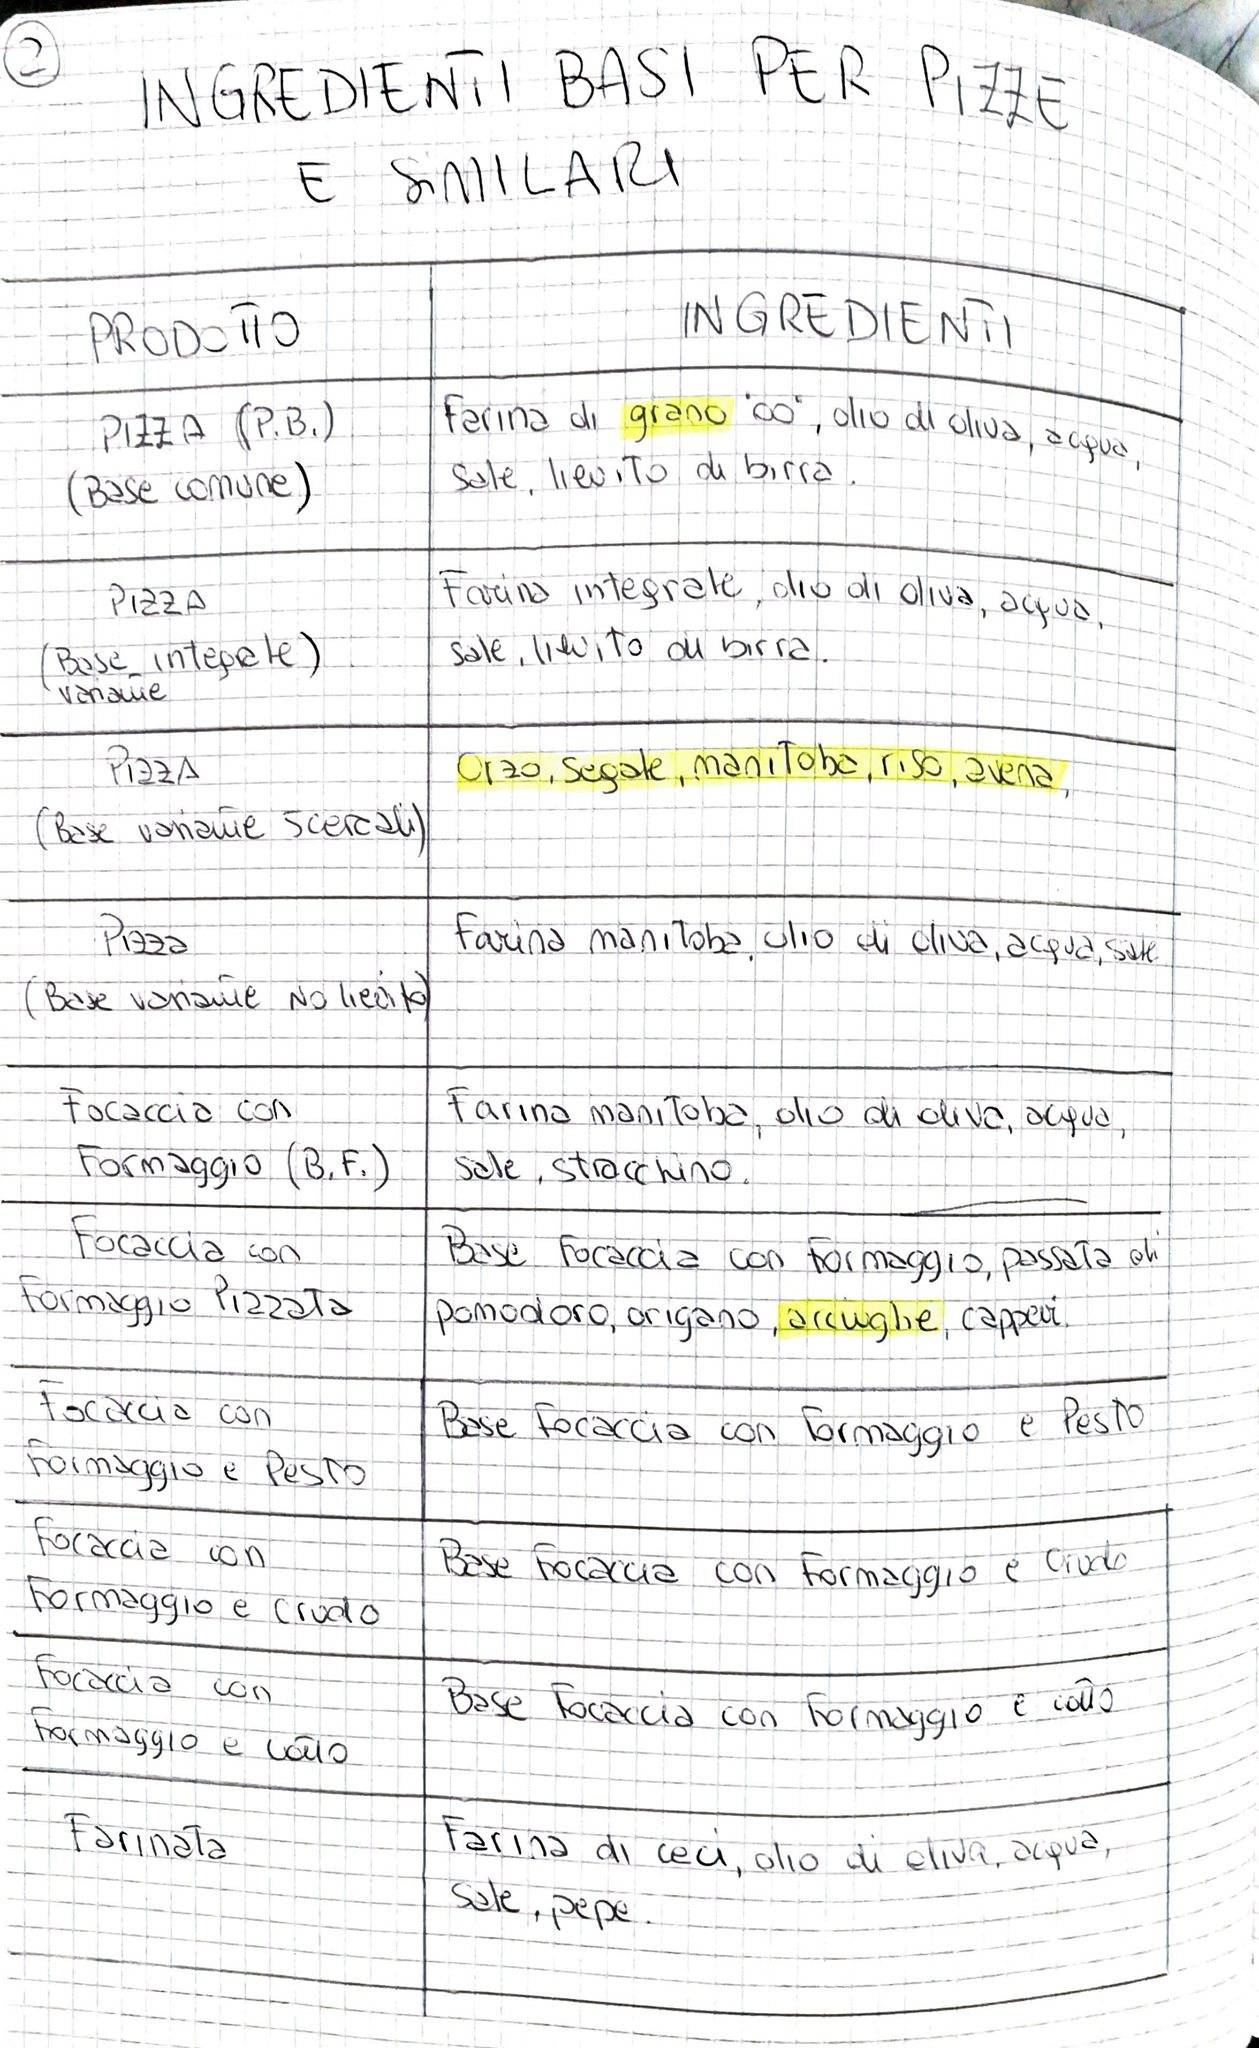 2
INGREDIENTI BASI PER PIZZE
E SIMILARI
PRODOTTO
INGREDIENTI
PIZZA (P.B.)
(Base comune)
Farina di grano "00", olio di oliva, acqua,
sale, lievito di birra.
PIZZA
(Base integrale)
variante
Farina integrale, olio di oliva, acqua,
sale, lievito di birra.
PIZZA
(Base variante 5 cereali)
Orzo, segale, manitoba, riso, avena,
Pizza
(Base variante No lievito)
Farina manitoba, olio di oliva, acqua, sale
Focaccia con
Formaggio (B.F.)
Farina manitoba, olio di oliva, acqua,
sale, stracchino.
Focaccia con
Formaggio Pizzata
Base Focaccia con Formaggio, passata di
pomodoro, origano, acciughe, capperi.
Focaccia con
Formaggio e Pesto
Base Focaccia con Formaggio e Pesto
Focaccia con
Formaggio e Crudo
Base Focaccia con Formaggio e Crudo
Focaccia con
Formaggio e cotto
Base Focaccia con Formaggio e cotto
Farinata
Farina di ceci, olio di oliva, acqua,
sale, pepe.